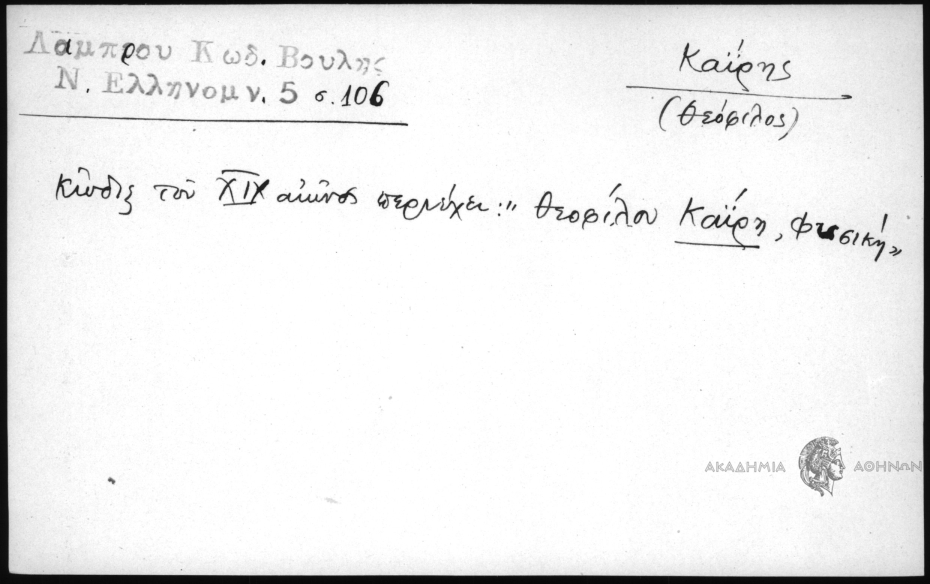 Λάμπρου Κωδ. Βουλης
Ν. Ελληνομν. 5 σ. 106
Καΐρης
(Θεόφιλος)
Κῶδιξ τοῦ XIX αἰῶνος περιέχει: " Θεοφίλου Καΐρη, Φυσική"
ΑΚΑΔΗΜΙΑ ΑΘΗΝΩΝ